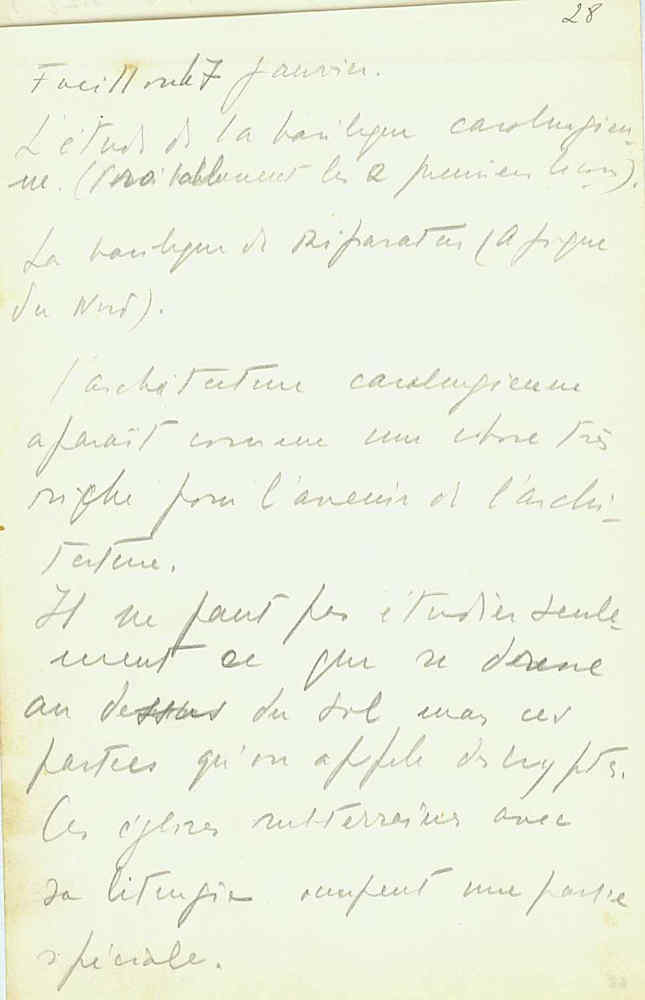 28
Focillon 17 janvier.
L'étude de la basilique carolingien-
ne. (Véritablement les 2 premiers leçons).
La basilique de Réparatus (Afrique
du Nord).
l'architecture carolingienne
aparaît comme une chose très
riche pour l'avenir de l'archi-
tecture.
Il ne faut pas étudier seule-
ment ce que se donne
au dessus du sol mais ces
parties qu'on appele des crypts.
Ces églises subterraines avec
sa liturgie occupent une partie
spéciale.